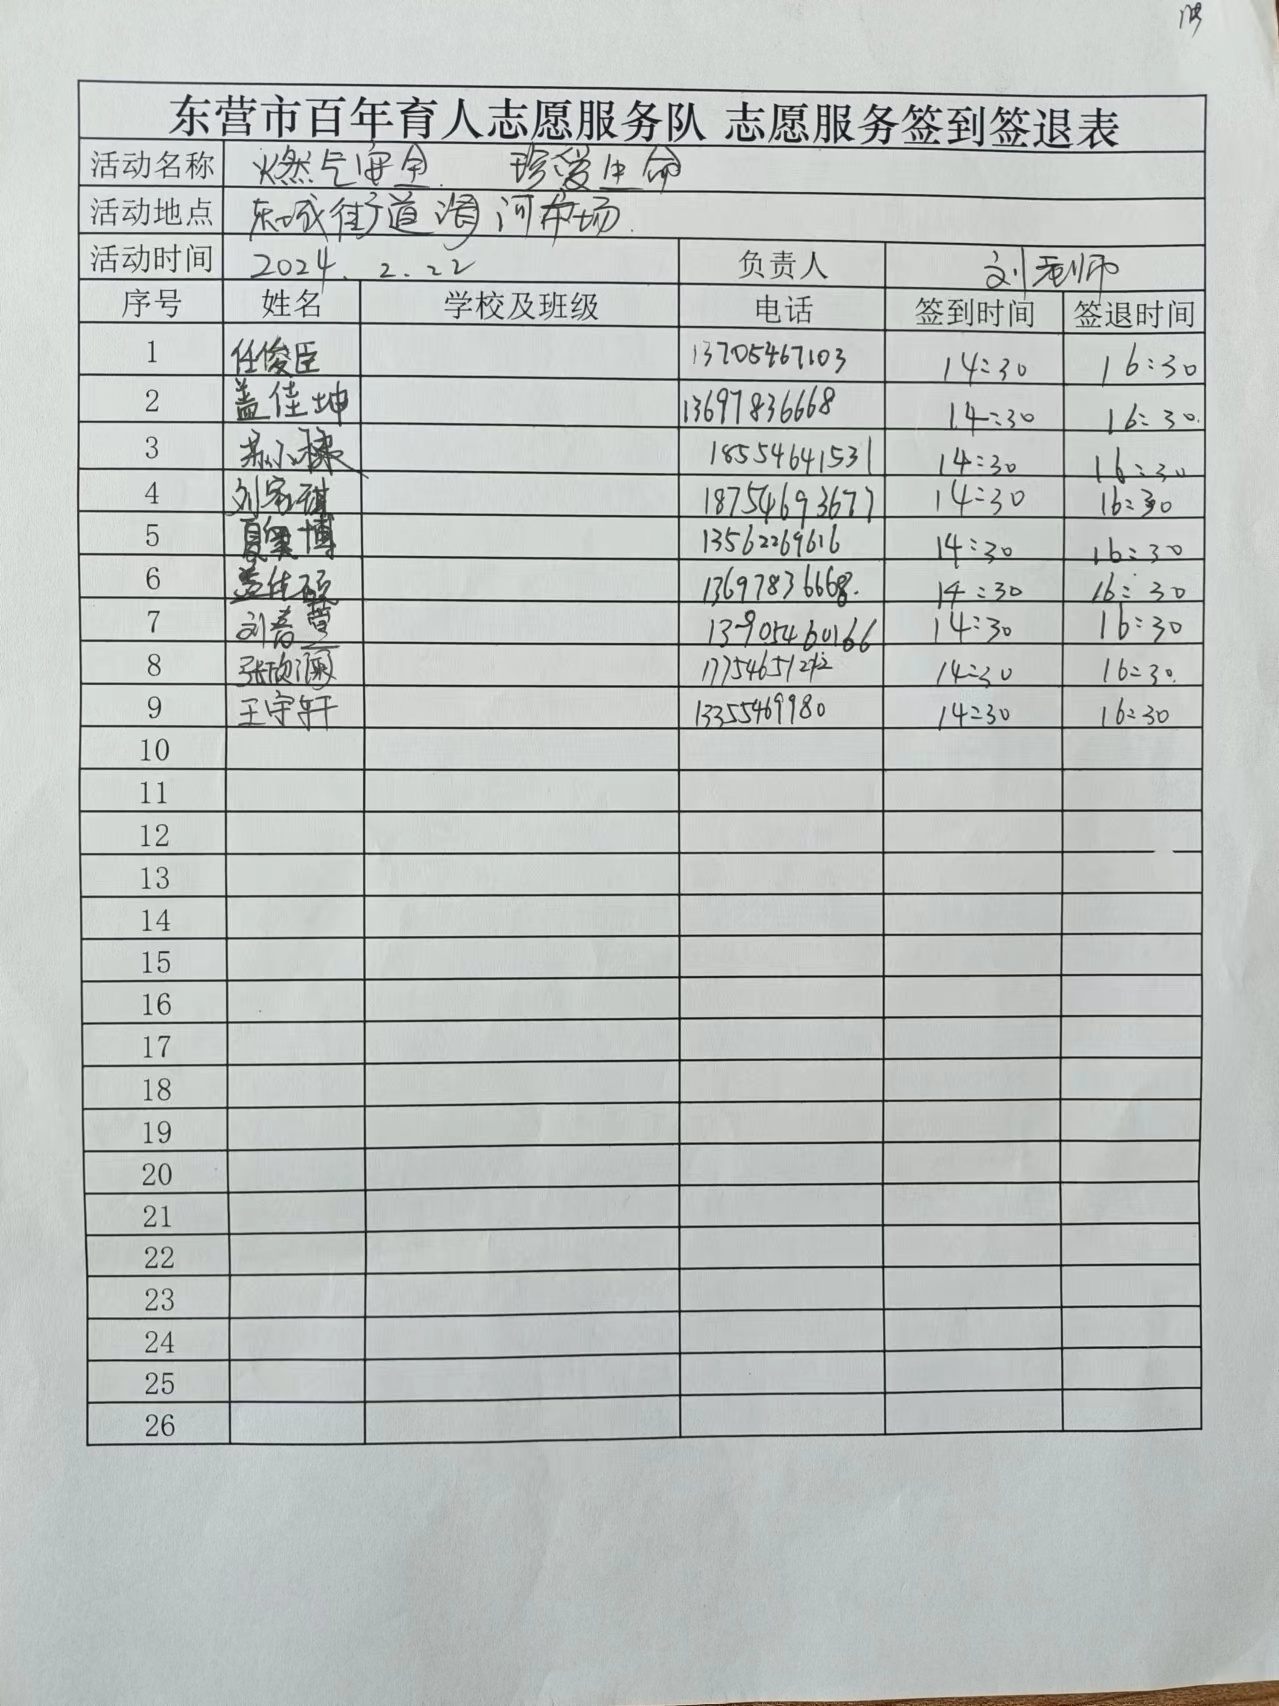 东营市百年育人志愿服务队 志愿服务签到签退表
活动名称 燃气安全 珍爱生命
活动地点 东城街道清河市场
活动时间 2024.2.22 负责人 刘老师
序号 姓名 学校及班级 电话 签到时间 签退时间
1 任俊臣 13705467103 14:30 16:30
2 盖佳坤 13697836668 14:30 16:30
3 18554641531 14:30 16:30
4 刘家祺 18754693677 14:30 16:30
5 13562269616 14:30 16:30
6 盖佳硕 13697836668 14:30 16:30
7 14:30 16:30
8 张欣涵 14:30 16:30
9 王宇轩 13355469980 14:30 16:30
10
11
12
13
14
15
16
17
18
19
20
21
22
23
24
25
26